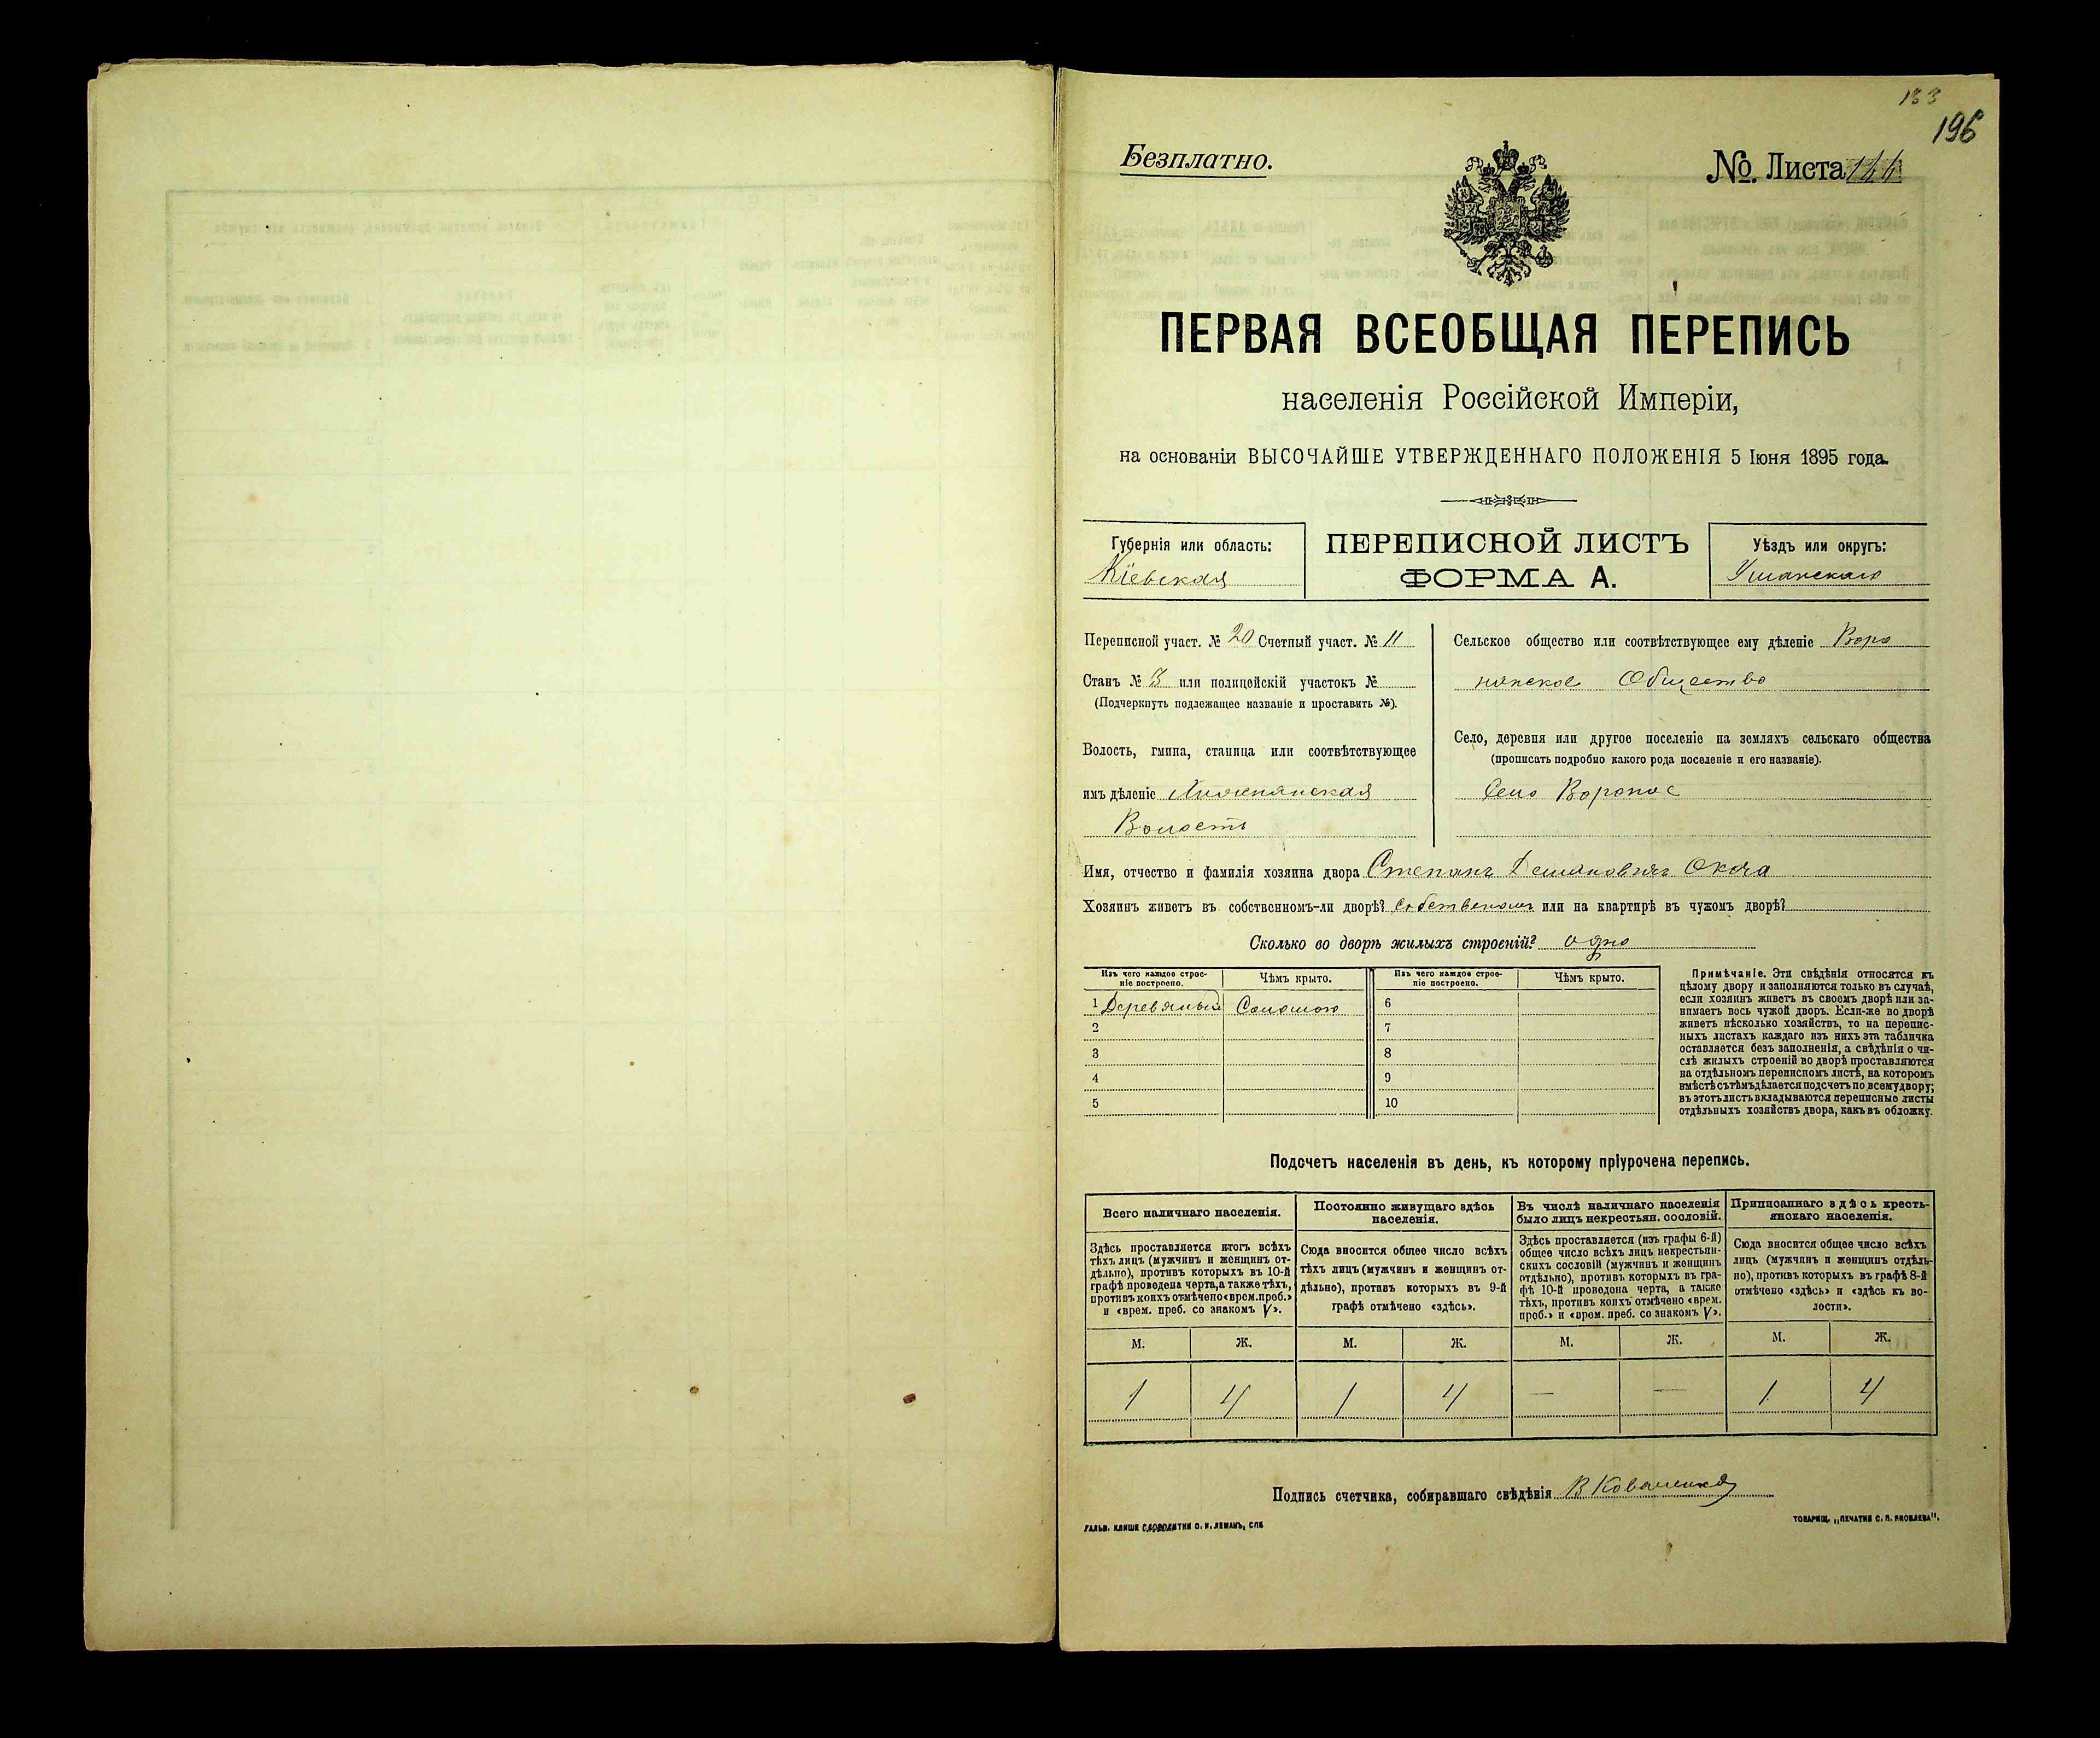 133
196
Безплатно.
№ Листа 144
ПЕРВАЯ ВСЕОБЩАЯ ПЕРЕПИСЬ
населенія Россійской Имперіи,
на основаніи ВЫСОЧАЙШЕ УТВЕРЖДЕННАГО ПОЛОЖЕНІЯ 5 Іюня 1895 года.
Губернія или область:
Кіевская
ПЕРЕПИСНОЙ ЛИСТЪ
ФОРМА А.
Уѣздъ или округъ:
Уманскаго
Переписной участ. № 20 Счетный участ. № 11
Станъ № 3 или полицейскій участокъ №
(Подчеркнуть подлежащее названіе и проставить №).
Волость, гмина, станица или соотвѣтствующее
имъ дѣленіе
Волость
Сельское общество или соотвѣтствующее ему дѣленіе Воро
нянское Общество
Село, деревня или другое поселеніе на земляхъ сельскаго общества
(прописать подробно какого рода поселеніе и его названіе).
Село Вороное
Имя, отчество и фамилія хозяина двора Степанъ Демяновичъ
Хозяинъ живетъ въ собственномъ-ли дворѣ? собственомъ или на квартирѣ въ чужомъ дворѣ?
Сколько во дворѣ жилыхъ строеній? одно
Изъ чего каждое строеніе построено.
Чѣмъ крыто.
Изъ чего каждое строеніе построено.
Чѣмъ крыто.
1 Деревяный Соломою
2
3
4
5
6
7
8
9
10
Примѣчаніе. Эти свѣдѣнія относятся къ
цѣлому двору и заполняются только въ случаѣ,
если хозяинъ живетъ въ своемъ дворѣ или за-
нимаетъ весь чужой дворъ. Если-же во дворѣ
живетъ нѣсколько хозяйствъ, то на перепис-
ныхъ листахъ каждаго изъ нихъ эта табличка
оставляется безъ заполненія, а свѣдѣнія о чи-
слѣ жилыхъ строеній во дворѣ проставляются
на отдѣльномъ переписномъ листѣ, на которомъ
вмѣстѣ съ тѣмъ дѣлается подсчетъ по всему двору;
въ этотъ листъ вкладываются переписные листы
отдѣльныхъ хозяйствъ двора, какъ въ обложку.
Подсчетъ населенія въ день, къ которому пріурочена перепись.
Всего наличнаго населенія.
Здѣсь проставляется итогъ всѣхъ
тѣхъ лицъ (мужчинъ и женщинъ от-
дѣльно), противъ которыхъ въ 10-й
графѣ проведена черта, а также тѣхъ,
противъ коихъ отмѣчено «врем. преб.»
и «врем. преб. со знакомъ V».
Постоянно живущаго здѣсь
населенія.
Сюда вносится общее число всѣхъ
тѣхъ лицъ (мужчинъ и женщинъ от-
дѣльно), противъ которыхъ въ 9-й
графѣ отмѣчено «здѣсь».
Въ числѣ наличнаго населенія
было лицъ некрестьян. сословій.
Здѣсь проставляется (изъ графы 6-й)
общее число всѣхъ лицъ некрестьян-
скихъ сословій (мужчинъ и женщинъ
отдѣльно), противъ которыхъ въ гра-
фѣ 10-й проведена черта, а также
тѣхъ, противъ коихъ отмѣчено «врем.
преб.» и «врем. преб. со знакомъ V».
Приписаннаго здѣсь кресть-
янскаго населенія.
Сюда вносится общее число всѣхъ
лицъ (мужчинъ и женщинъ отдѣль-
но), противъ которыхъ въ графѣ 8-й
отмѣчено «здѣсь» и «здѣсь къ во-
лости».
М. Ж. М. Ж. М. Ж. М. Ж.
1 4 1 4 — — 1 4
Подпись счетчика, собиравшаго свѣдѣнія В Коваленко
ГАЛЬВ. КЛИШЕ СЛОВОЛИТНИ О. И. ЛЕМАНЪ, СПБ
ТОВАРИЩ. „ПЕЧАТНЯ С. П. ЯКОВЛЕВА".